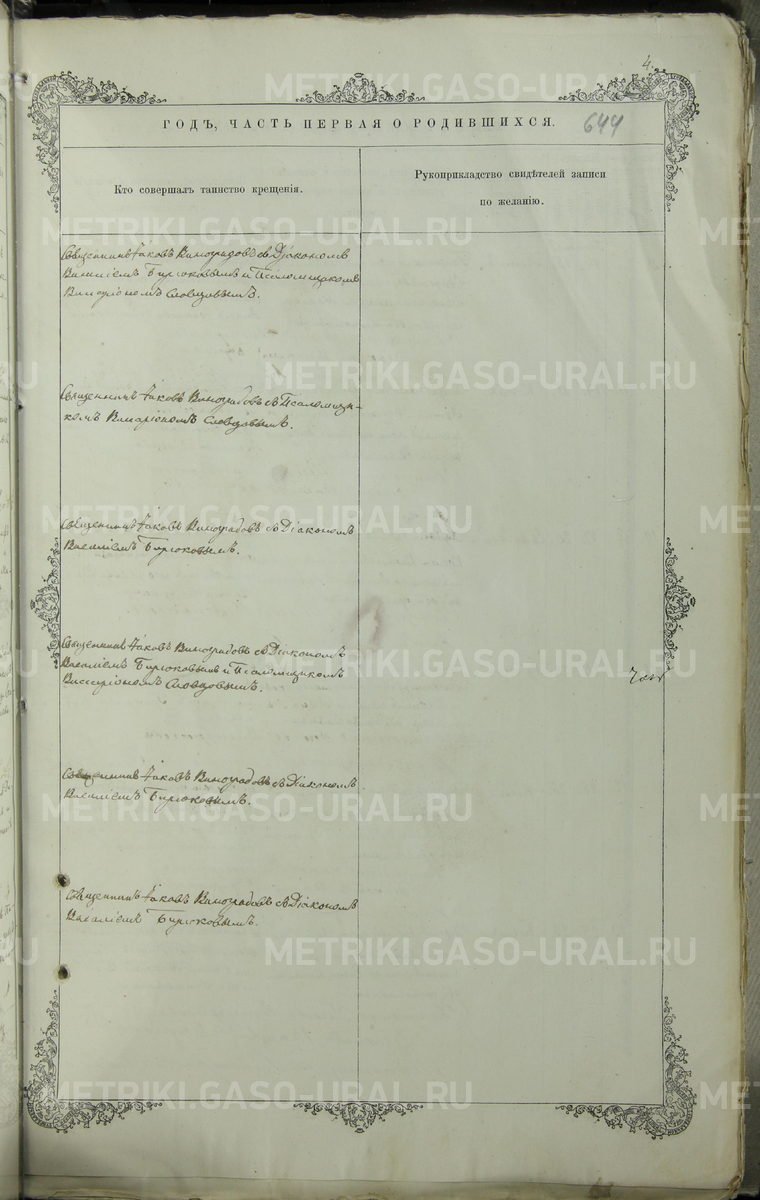 4.
ГОДЪ, ЧАСТЬ ПЕРВАЯ О РОДИВШИХСЯ.
644
Кто совершалъ таинство крещенія.
Рукоприкладство свидѣтелей записи
по желанію.
Священникъ Іаковъ Виноградовъ съ Діакономъ
Василіемъ Бирюковымъ и Псаломщикомъ
Виссаріономъ Словцовымъ.
Священникъ Іаковъ Виноградовъ съ Псаломщи-
комъ Виссаріономъ Словцовымъ.
Священникъ Іаковъ Виноградовъ съ Діакономъ
Василіемъ Бирюковымъ.
Священникъ Іаковъ Виноградовъ съ Діакономъ
Василіемъ Бирюковымъ и Псаломщикомъ
Виссаріономъ Словцовымъ.
Священникъ Іаковъ Виноградовъ съ Діакономъ
Василіемъ Бирюковымъ.
Священникъ Іаковъ Виноградовъ съ Діакономъ
Василіемъ Бирюковымъ.
METRIKI.GASO-URAL.RU